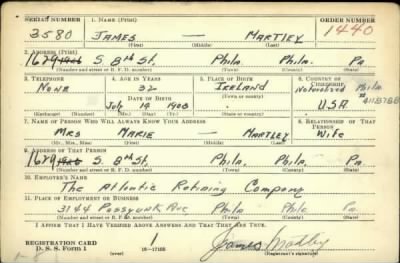 SERIAL NUMBER 1. NAME (Print) ORDER NUMBER
3580 JAMES — MARTLEY 1440
(First) (Middle) (Last)
2. ADDRESS (Print)
1629 S. 8th St. Phila. Phila. Pa
(Number and street or R. F. D. number) (Town) (County) (State)
3. TELEPHONE 4. AGE IN YEARS 5. PLACE OF BIRTH 6. COUNTRY OF CITIZENSHIP
None 32 IRELAND Naturalized Phila
(Town or county)
July 19 1908 U.S.A.
(Exchange) (Number) (Mo.) (Day) (Yr.) (State or country)
7. NAME OF PERSON WHO WILL ALWAYS KNOW YOUR ADDRESS 8. RELATIONSHIP OF THAT PERSON
Mrs MARIE — MARTLEY Wife
(Mr., Mrs., Miss) (First) (Middle) (Last)
9. ADDRESS OF THAT PERSON
1629 S. 8th St. Phila. Phila. Pa.
(Number and street or R. F. D. number) (Town) (County) (State)
10. EMPLOYER'S NAME
The Atlantic Refining Company
11. PLACE OF EMPLOYMENT OR BUSINESS
3144 Passyunk Ave Phila Phila Pa
(Number and street or R. F. D. number) (Town) (County) (State)
I AFFIRM THAT I HAVE VERIFIED ABOVE ANSWERS AND THAT THEY ARE TRUE.
REGISTRATION CARD
D. S. S. Form 1 (over) 16—17105 (Registrant's signature)
James Martley